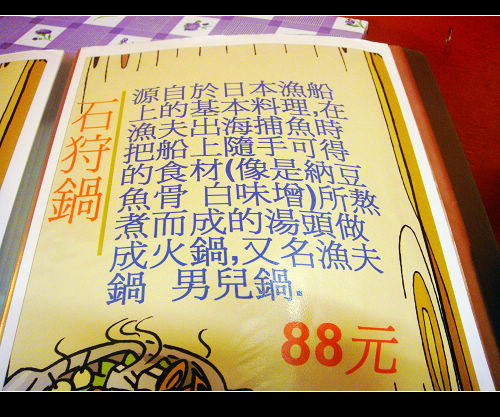 石狩鍋
源自於日本漁船
上的基本料理,在
漁夫出海捕魚時
把船上隨手可得
的食材(像是納豆
魚骨 白味增)所熬
煮而成的湯頭做
成火鍋,又名漁夫
鍋 男兒鍋.
88元